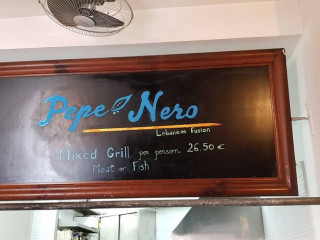 Pepe Nero
Lebanese fusion
Mixed Grill per person 26.50 €
Meat or Fish